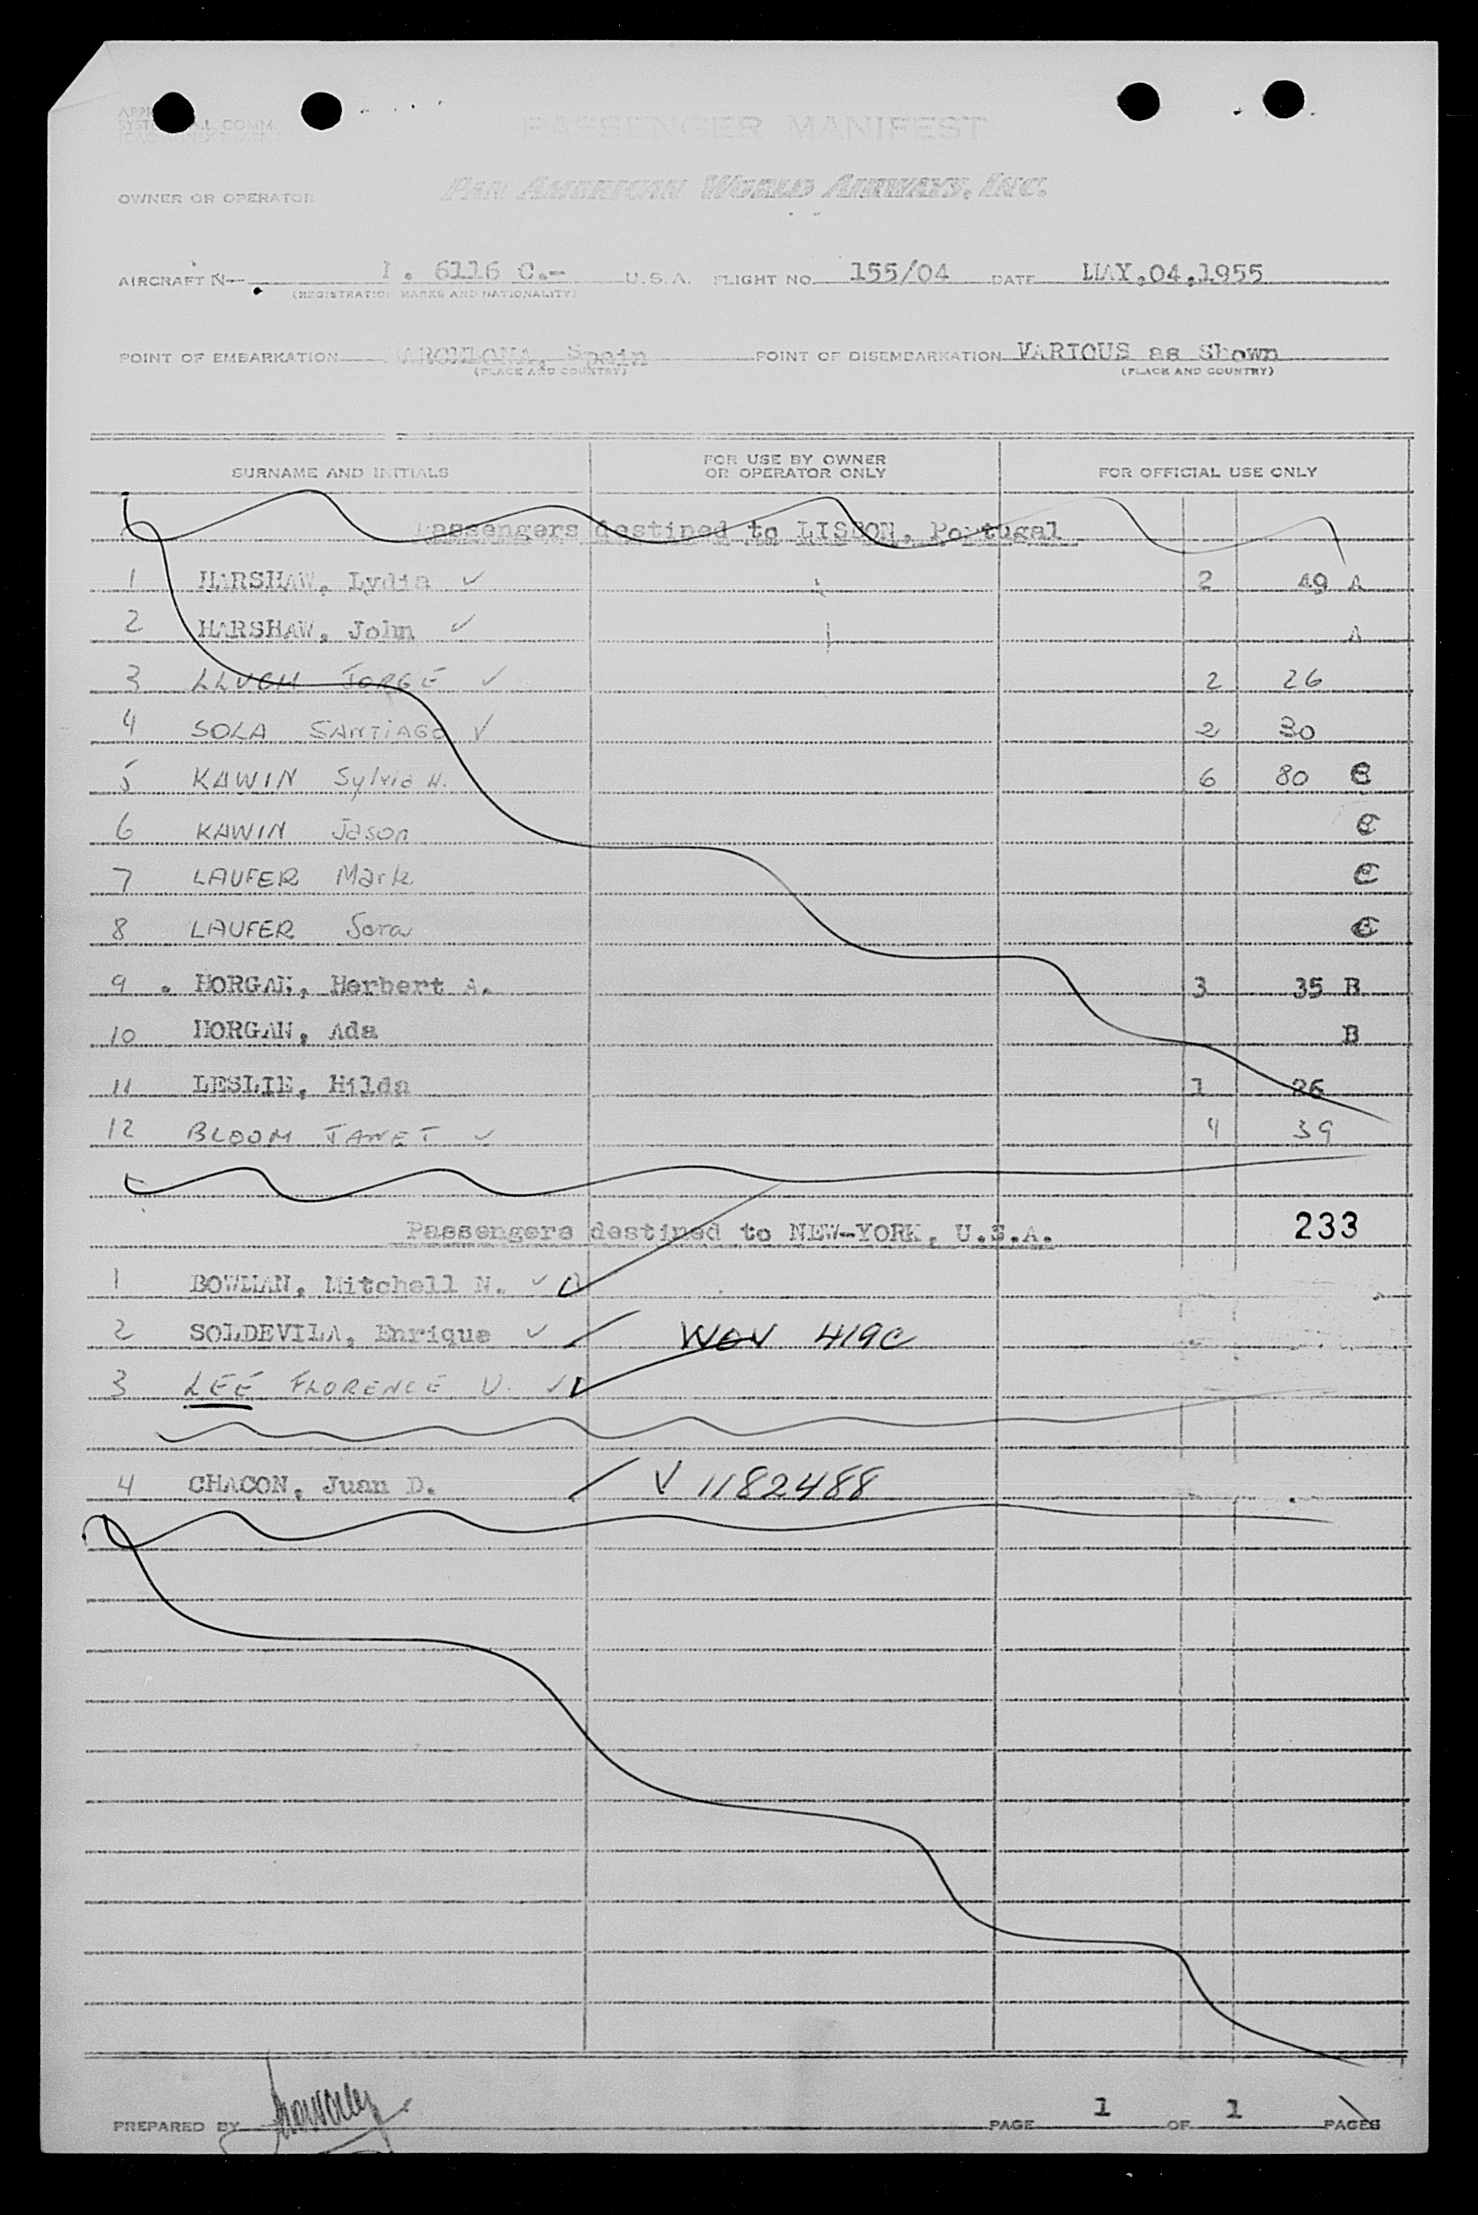 PASSENGER MANIFEST
OWNER OR OPERATOR PAN AMERICAN WORLD AIRWAYS, INC.
AIRCRAFT N 6116 C.- U.S.A. FLIGHT NO. 155/04 DATE MAY,04,1955
(REGISTRATION MARKS AND NATIONALITY)
POINT OF EMBARKATION BARCELONA, Spain POINT OF DISEMBARKATION VARIOUS as Shown
(PLACE AND COUNTRY) (PLACE AND COUNTRY)
SURNAME AND INITIALS FOR USE BY OWNER OR OPERATOR ONLY FOR OFFICIAL USE ONLY
Passengers destined to LISBON, Portugal
1 HARSHAW, Lydia ✓ 2 49 A
2 HARSHAW, John ✓ A
3 LLUCH JORGE ✓ 2 26
4 SOLA SANTIAGO ✓ 2 30
5 KAWIN Sylvia H. 6 80 C
6 KAWIN Jason C
7 LAUFER Mark C
8 LAUFER Sora C
9 . HORGAN, Herbert A. 3 35 B
10 HORGAN, Ada B
11 LESLIE, Hilda 1 26
12 BLOOM JANET ✓ 4 39
Passengers destined to NEW-YORK, U.S.A. 233
1 BOWMAN, Mitchell N. ✓
2 SOLDEVILA, Enrique ✓ 419C
3 LEE FLORENCE U. ✓
4 CHACON, Juan D. V 1182488
PREPARED BY PAGE 1 OF 1 PAGES